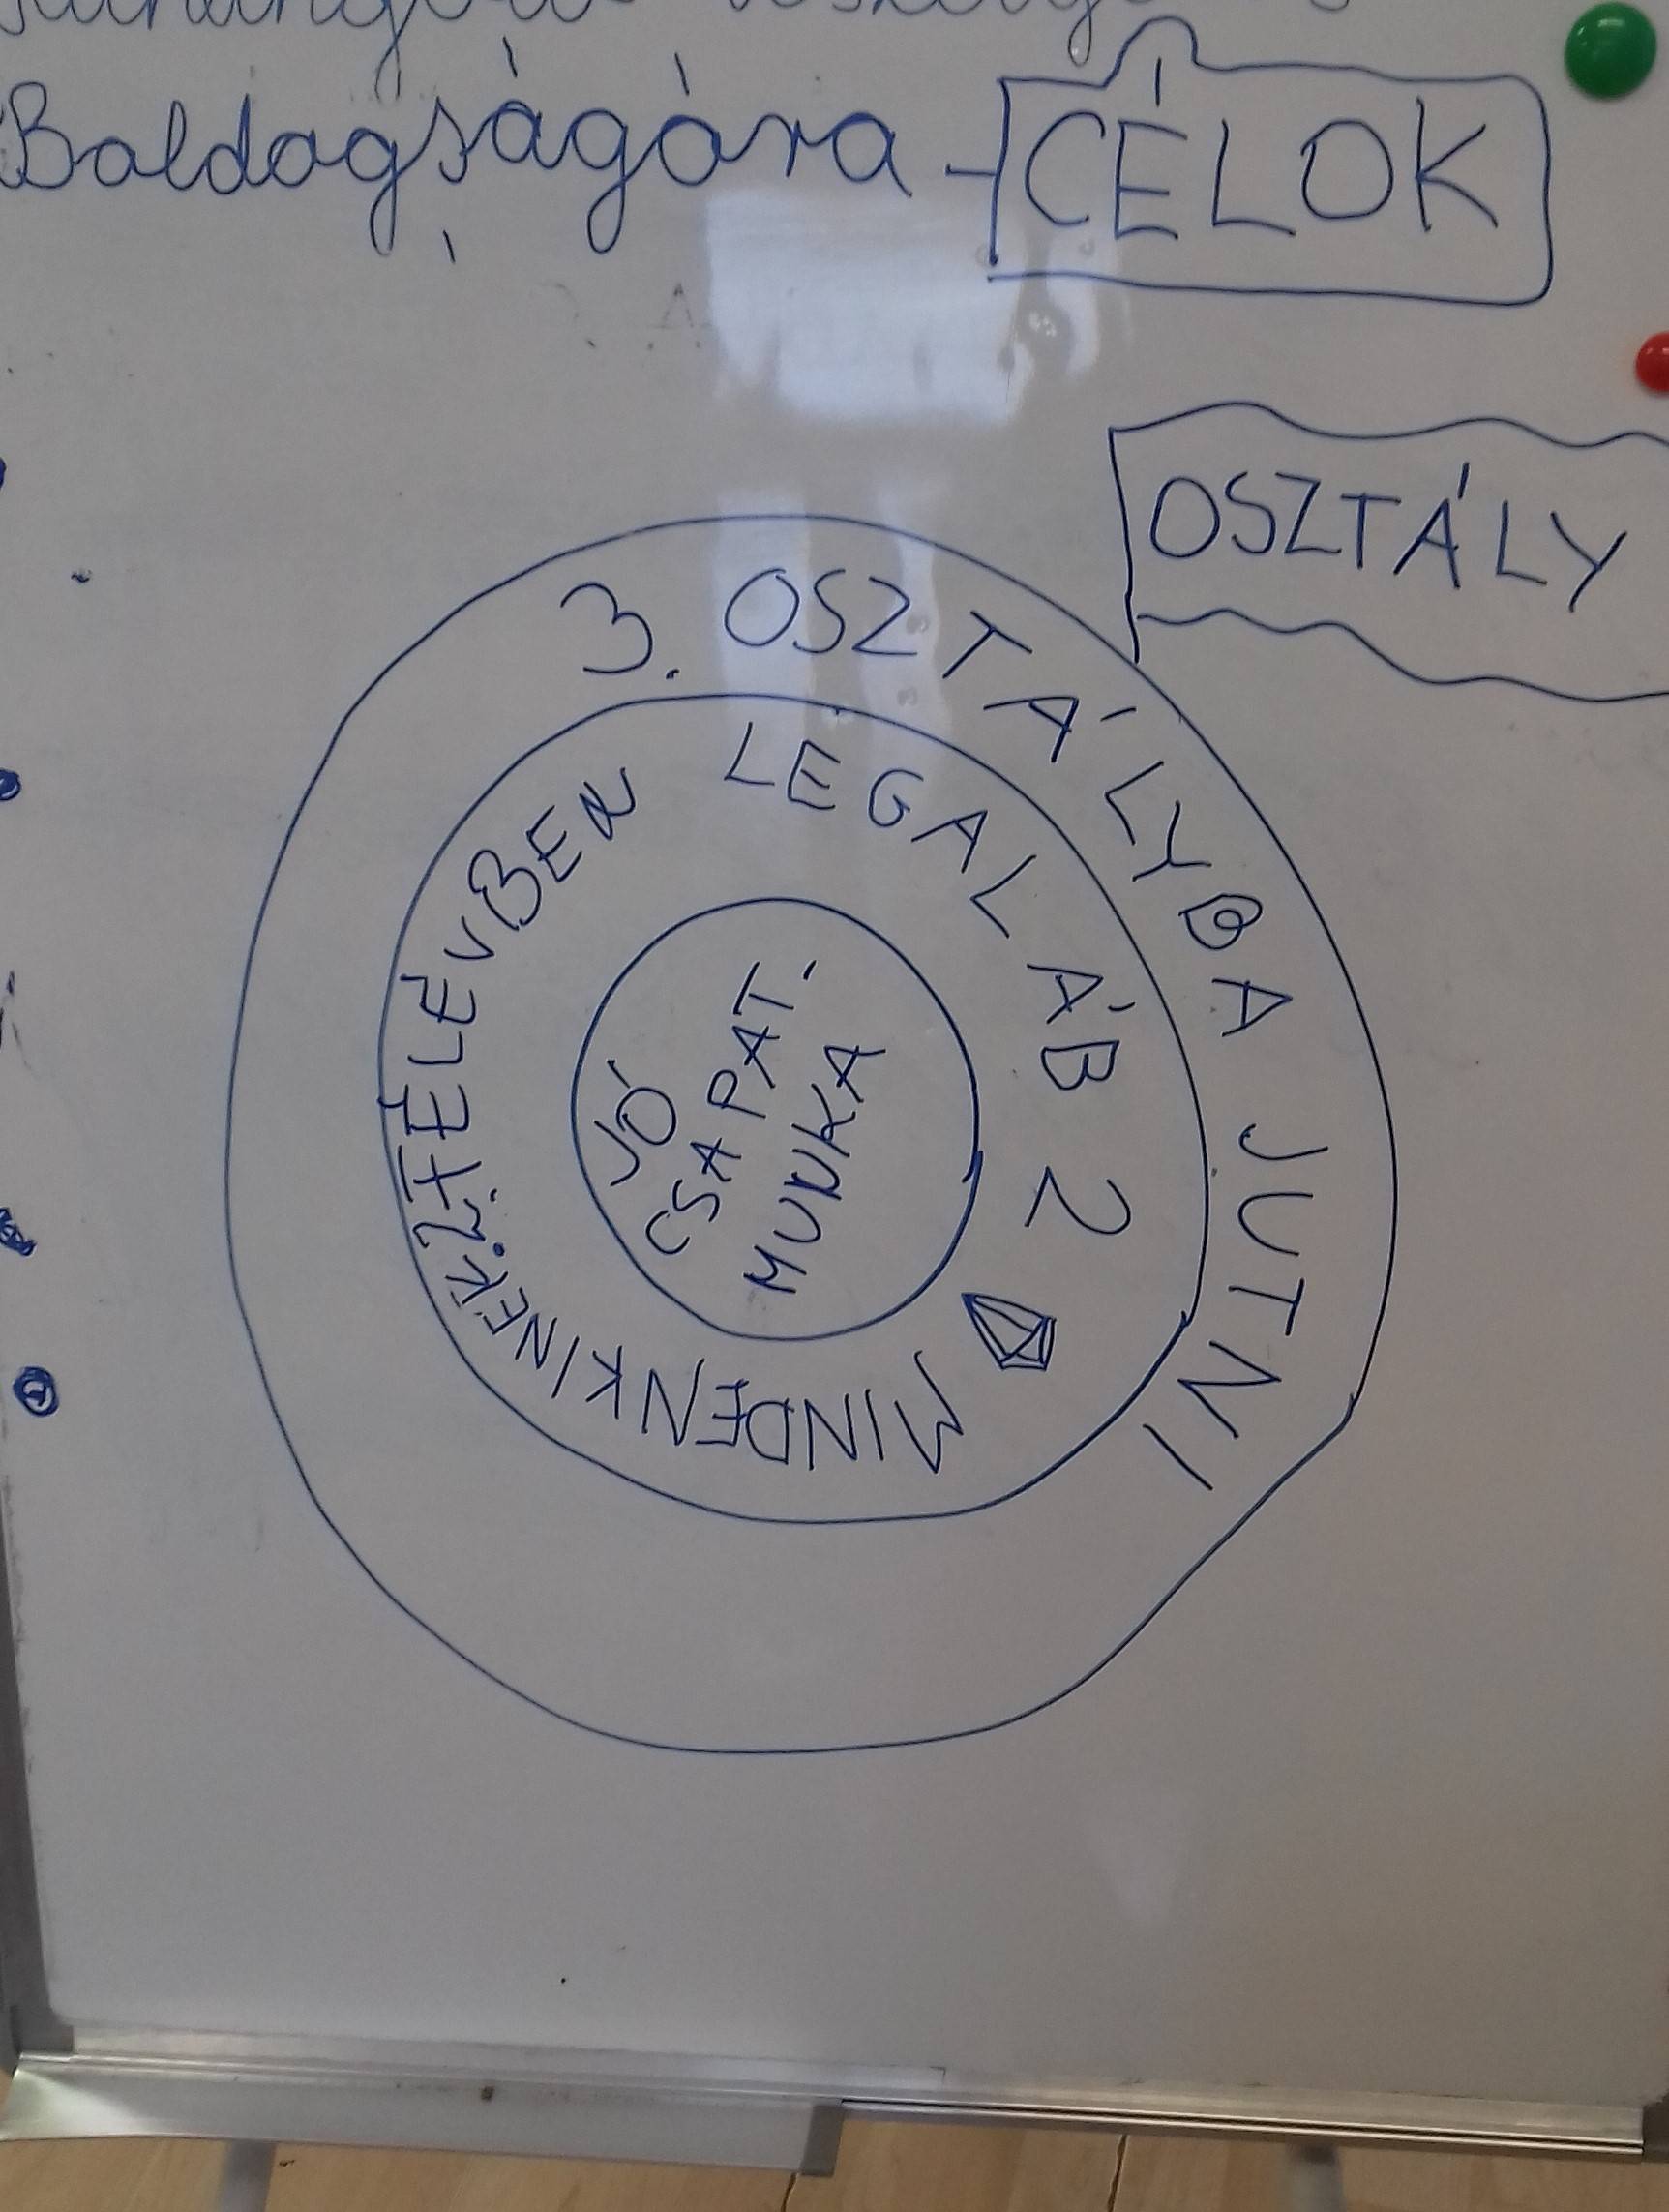 Boldogságára - CÉLOK
OSZTÁLY
3. OSZTÁLYBA JUTNI
2. FÉLÉVBEN LEGALÁB 2
MINDENKINEK
JÓ
CSAPAT.
MUNKA